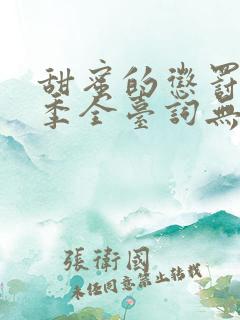 甜蜜的懲罰
季全臺詞無
張衛國
未经同意禁止转载